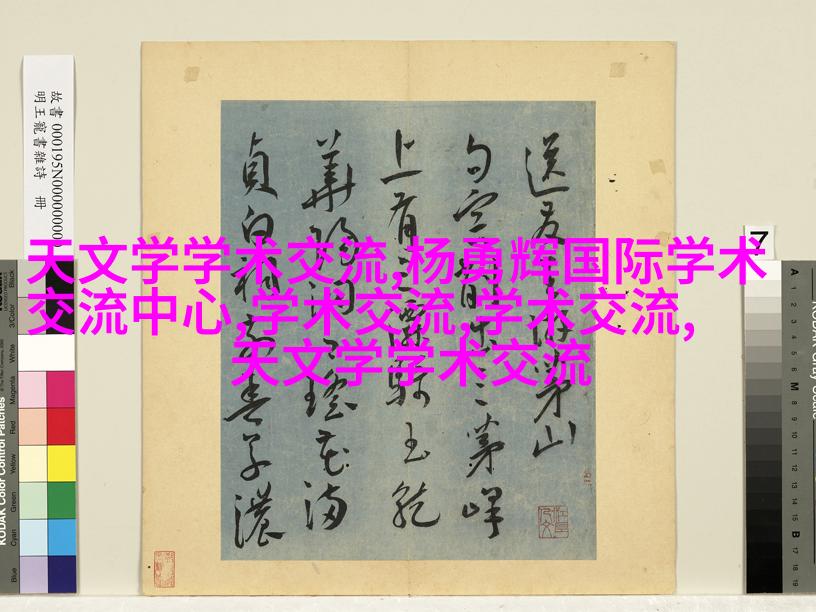 天文学学术交流,杨勇辉国际学术
交流中心,学术交流,学术交流,
天文学学术交流
送友 游茅山
三茅峰
上有 玉龍
華陽洞 瑤花滿
貞白祠 春草濃
故書 000195N000000000
明王寵書雜詩 冊
7
KODAK Color Control Patches
Blue
Cyan
Green
Yellow
Red
Magenta
White
3/Color
Black
A
1
2
3
4
5
6
M
8
9
10
11
12
13
14
15
B
17
18
19